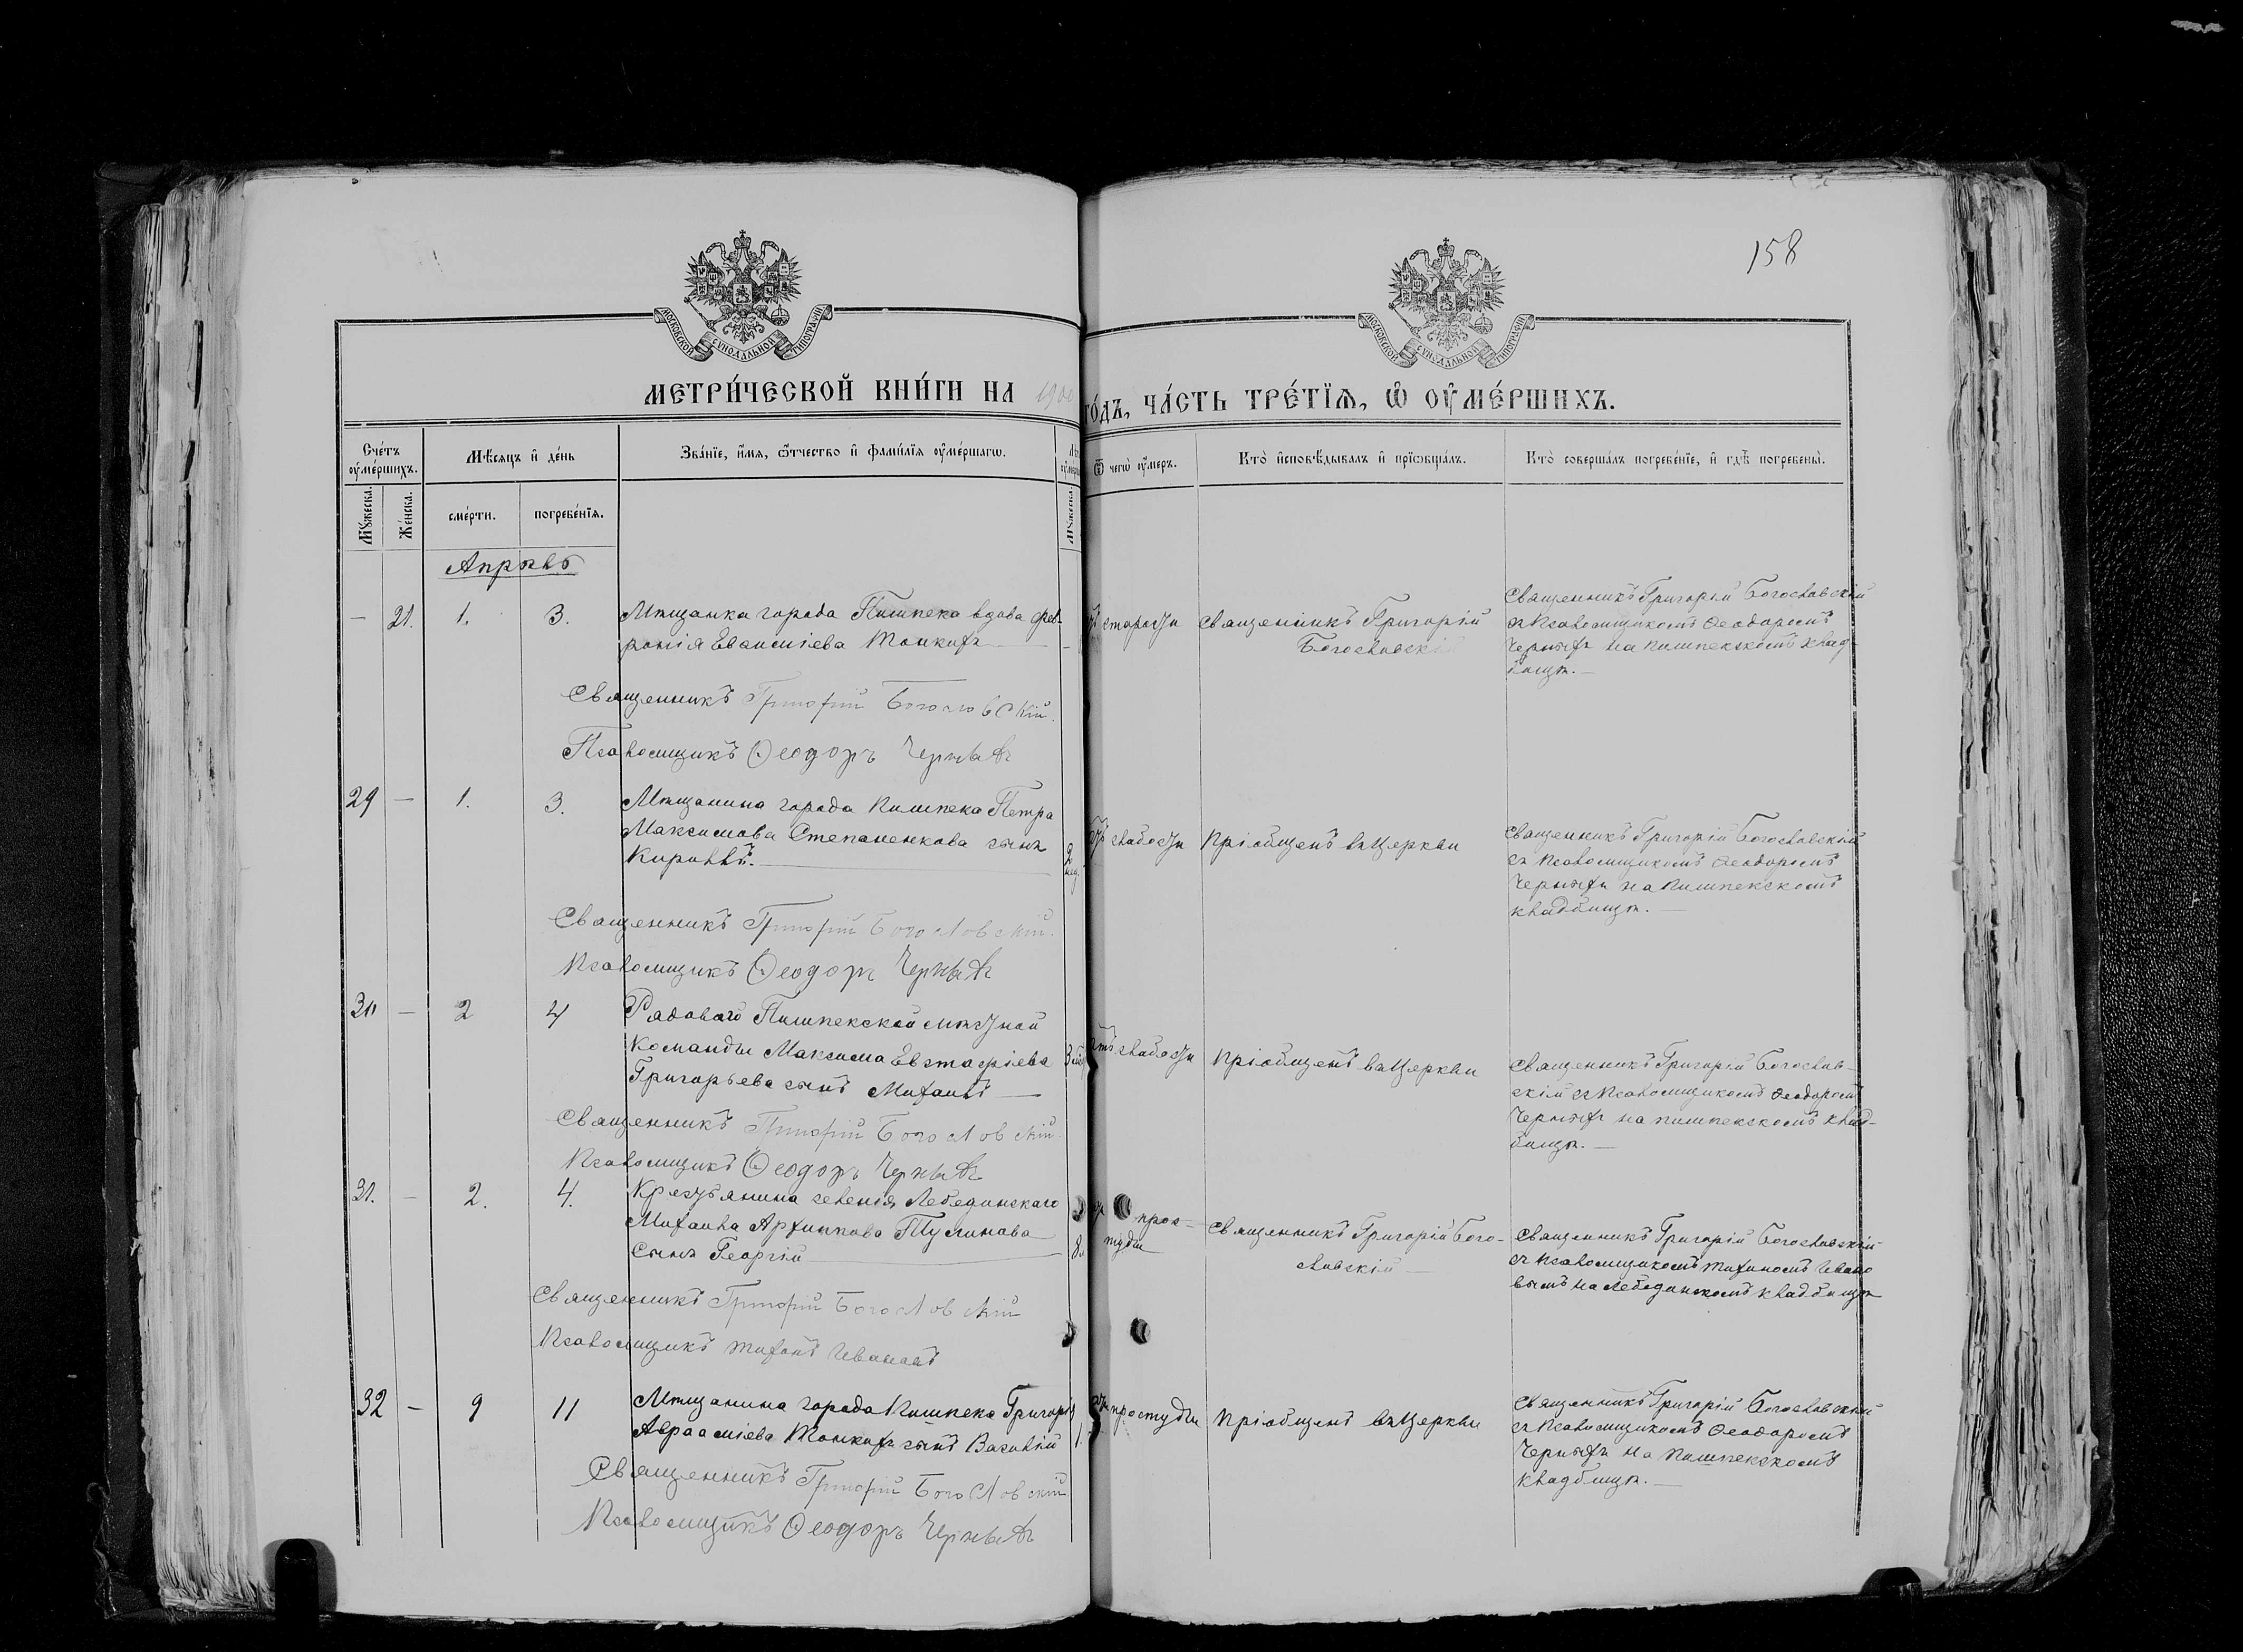 158
МОСКОВСКОЙ СУНОДАЛЬНОЙ ТИПОГРАФІИ
МОСКОВСКОЙ СУНОДАЛЬНОЙ ТИПОГРАФІИ
МЕТРИ́ЧЕСКОЙ КНИ́ГИ НА 1900
ГО́ДЪ, ЧА́СТЬ ТРЕ́ТЇѦ, Ѡ҆ ОУ҆МЕ́РШИХЪ.
Сче́тъ оу҆ме́ршихъ.
Мѣ́сяцъ и҆ де́нь
Зва́нїе, и҆́мя, ѻ҆́тчество и҆ фами́лїя оу҆ме́ршагѡ.
Ѿ чегѡ̀ оу҆́меръ.
Кто̀ и҆сповѣ́дывалъ и҆ прїѡбща́лъ.
Кто̀ соверша́лъ погребе́нїе, и҆ гдѣ̀ погребены̀.
Мꙋ́жеска.
Же́нска.
сме́рти.
погребе́нїѧ.
Мꙋ́жеска.
Апрѣль
— 21. 1. 3. Мѣщанка города Пишпека вдова Фев-
ронія Евѳиміева Тонкихъ
старости
Священникъ Григорій
Богословскій
Священникъ Григорій Богословскій
съ Псаломщикомъ Ѳеодоромъ
Черныхъ на Пишпекскомъ клад-
бищѣ. —
Священникъ Григорій Богословскій.
Псаломщикъ Ѳеодоръ Черныхъ
29 — 1. 3. Мѣщанина города Пишпека Петра
Максимова Степаненкова сынъ
Кириллъ.
2 нед.
отъ слабости
Пріобщенъ въ Церкви
Священникъ Григорій Богословскій
съ Псаломщикомъ Ѳеодоромъ
Черныхъ на Пишпекскомъ
кладбищѣ. —
Священникъ Григорій Богословскій.
Псаломщикъ Ѳеодоръ Черныхъ
30 — 2 4 Рядового Пишпекской мѣстной
команды Максима Евстафіева
Григорьева сынъ Михаилъ —
отъ слабости
Пріобщенъ въ Церкви
Священникъ Григорій Богослов-
скій съ Псаломщикомъ Ѳеодоромъ
Черныхъ на пишпекскомъ клад-
бищѣ. —
Священникъ Григорій Богословскій.
Псаломщикъ Ѳеодоръ Черныхъ
31. — 2. 4. Крестьянина селенія Лебединскаго
Михаила Архипова
Сынъ Георгій
прос-
туды
Священникъ Григорій Бого-
словскій —
Священникъ Григорій Богословскій
съ Псаломщикомъ Тихономъ Ивано
вымъ на Лебединскомъ кладбищѣ
Священникъ Григорій Богословскій
Псаломщикъ Тихонъ Ивановъ
32 — 9 11 Мѣщанина города Пишпека Григорія
Авраамiева Тонкихъ сынъ Василій
1.
простуды
Пріобщенъ въ Церкви
Священникъ Григорій Богословскій
съ Псаломщикомъ Ѳеодоромъ
Черныхъ на Пишпекскомъ
кладбищѣ. —
Священникъ Григорій Богословскій
Псаломщикъ Ѳеодоръ Черныхъ